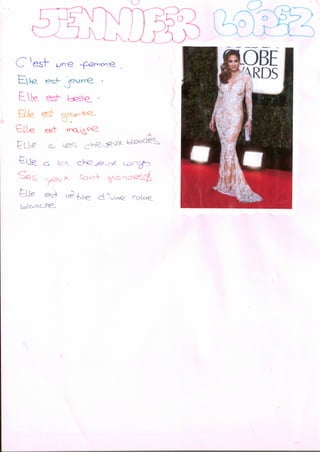 JENNIFER LÓPEZ
C'est une femme.
Elle est jeune.
Elle est belle.
Elle est grande
Elle est maigre
Elle a les cheveux blondes
Elle a les cheveux longs
Ses yeux sont grandes
Elle est vêtue d'une robe
blanche.
GLOBE
AWARDS